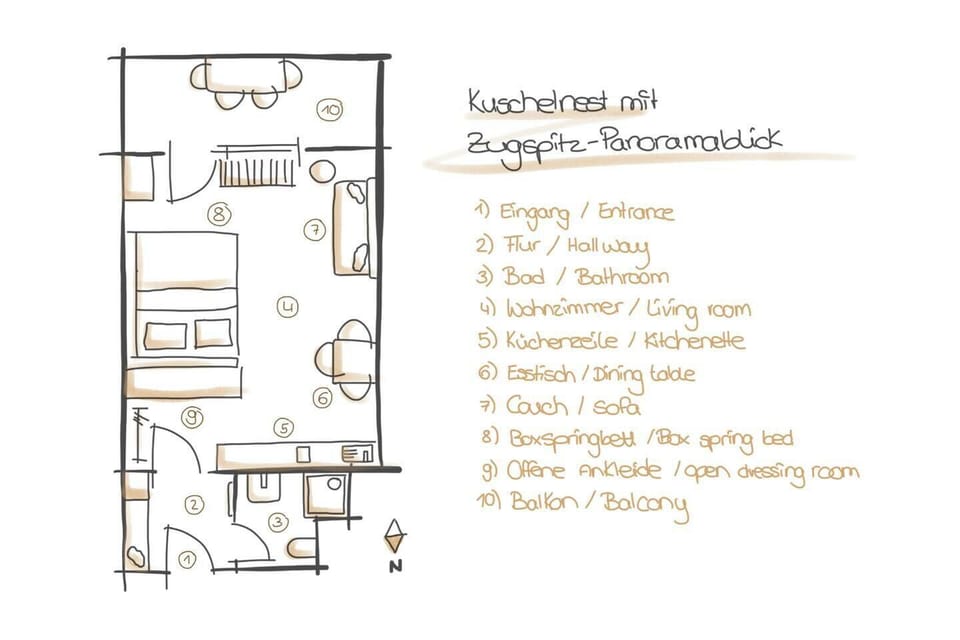 Kuschelnest mit
Zugspitz-Panoramablick
1) Eingang / Entrance
2) Flur / Hallway
3) Bad / Bathroom
4) Wohnzimmer / Living room
5) Küchenzeile / Kitchenette
6) Esstisch / Dining table
7) Couch / Sofa
8) Boxspringbett / Box spring bed
9) Offene Ankleide / open dressing room
10) Balkon / Balcony
10
8
7
4
6
9
5
2
3
1
N